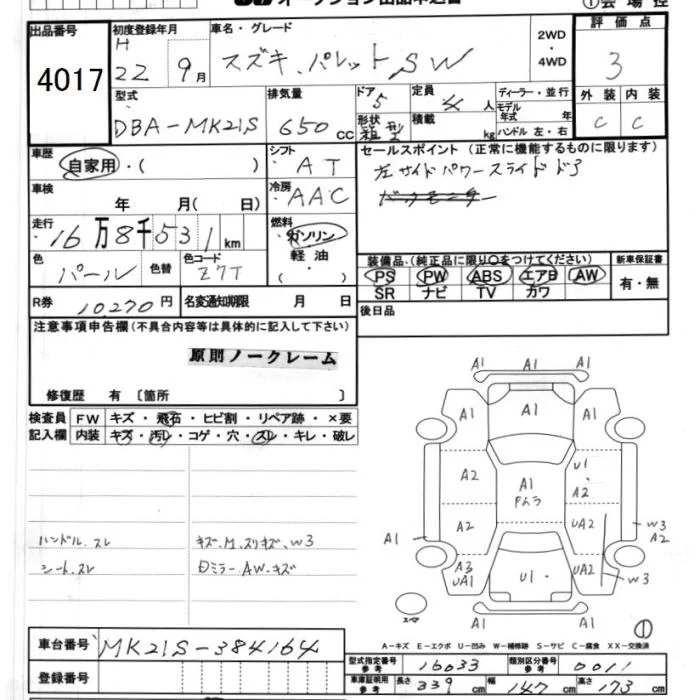 オークション出品申込書
①会場控
出品番号 4017
初度登録年月 H 22年 9月
車名・グレード スズキ パレット SW
2WD・4WD
評価点 3
型式 DBA-MK21S
排気量 650 CC
ドア 5
形状 箱型
定員 4人
積載 kg
ディーラー・並行
モデル年式 年
ハンドル 左・右
外装 C
内装 C
車歴 自家用・( )
シフト AT
セールスポイント(正常に機能するものに限ります)
左サイドパワースライドドア
バックモニター
車検 年 月( 日)
冷房 AAC
走行 16万8千531km
燃料 ガソリン 軽油
色 パール
色替
色コード Z7T
装備品(純正品に限り○をつけてください)
PS PW ABS エアB AW
SR ナビ TV カワ
新車保証書 有・無
R券 10,270円
名変通知期限 月 日
後日品
注意事項申告欄(不具合内容等は具体的に記入して下さい)
原則ノークレーム
修復歴 有〔箇所 〕
検査員記入欄
FW キズ・飛石・ヒビ割・リペア跡・×要
内装 キズ・汚レ・コゲ・穴・スレ・キレ・破レ
ハンドル.スレ キズ.M.スリキズ.W3
シート.スレ Dミラー.AW.キズ
A1 A1
A1 A1 A1
A2 A1 Pムラ U1 A2
A1 A2 UA2 W3 A2
A3 UA1 U1 UA2 W3
スペア
A1
①
A-キズ E-エクボ U-凹み W-補修跡 S-サビ C-腐食 XX-交換済
車台番号 MK21S-384164
登録番号
型式指定番号 参考 16033
類別区分番号 参考 0011
車庫証明用 参考 長さ 339cm 幅 147cm 高さ 173cm